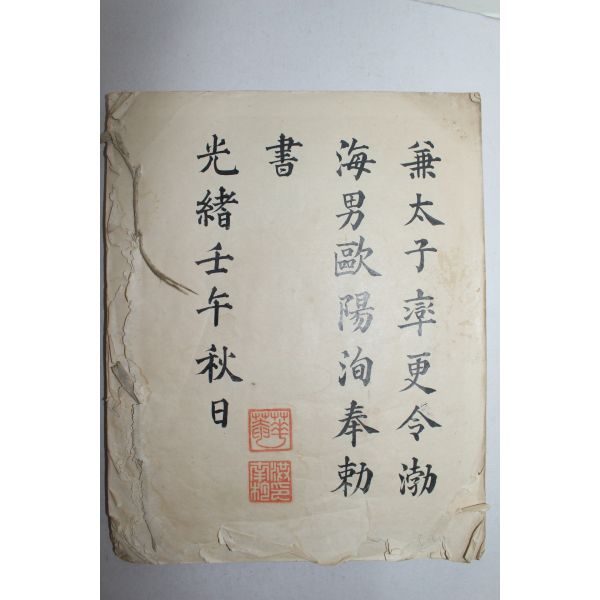 兼太子率更令渤
海男歐陽洵奉勑
書
光緒壬午秋日